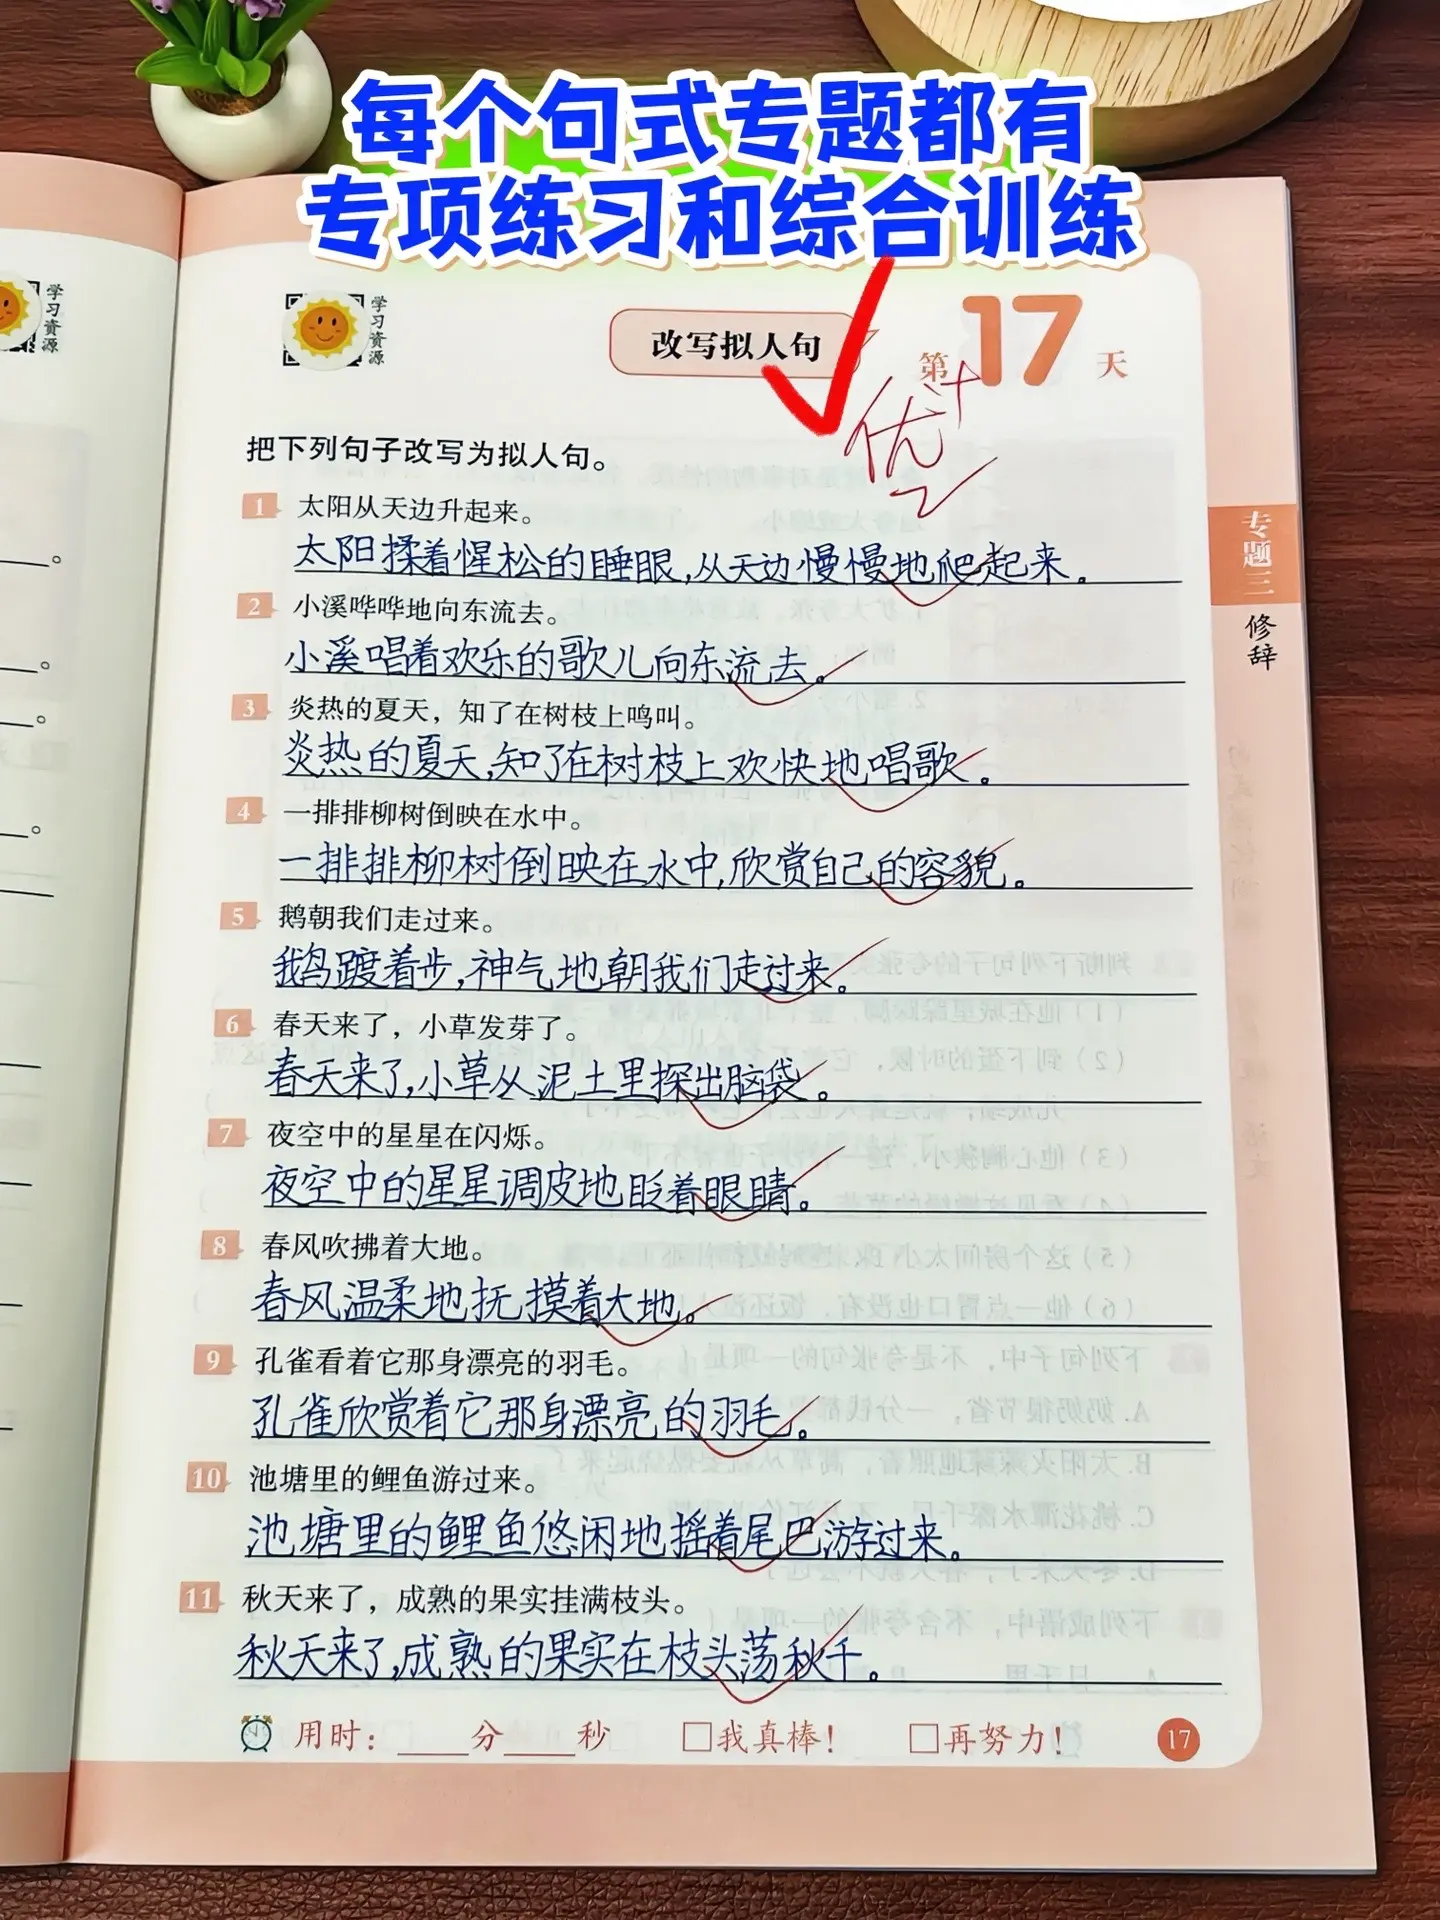 每个句式专题都有
专项练习和综合训练
学习资源
学习资源
改写拟人句
第17天
优+
把下列句子改写为拟人句。
1 太阳从天边升起来。
太阳揉着惺松的睡眼,从天边慢慢地爬起来。
2 小溪哗哗地向东流去。
小溪唱着欢乐的歌儿向东流去。
3 炎热的夏天，知了在树枝上鸣叫。
炎热的夏天,知了在树枝上欢快地唱歌。
4 一排排柳树倒映在水中。
一排排柳树倒映在水中,欣赏自己的容貌。
5 鹅朝我们走过来。
鹅踱着步,神气地朝我们走过来。
6 春天来了，小草发芽了。
春天来了,小草从泥土里探出脑袋。
7 夜空中的星星在闪烁。
夜空中的星星调皮地眨着眼睛。
8 春风吹拂着大地。
春风温柔地抚摸着大地。
9 孔雀看着它那身漂亮的羽毛。
孔雀欣赏着它那身漂亮的羽毛。
10 池塘里的鲤鱼游过来。
池塘里的鲤鱼悠闲地摇着尾巴游过来。
11 秋天来了，成熟的果实挂满枝头。
秋天来了,成熟的果实在枝头荡秋千。
用时：____分____秒 □我真棒！ □再努力！
17
专题三
修辞